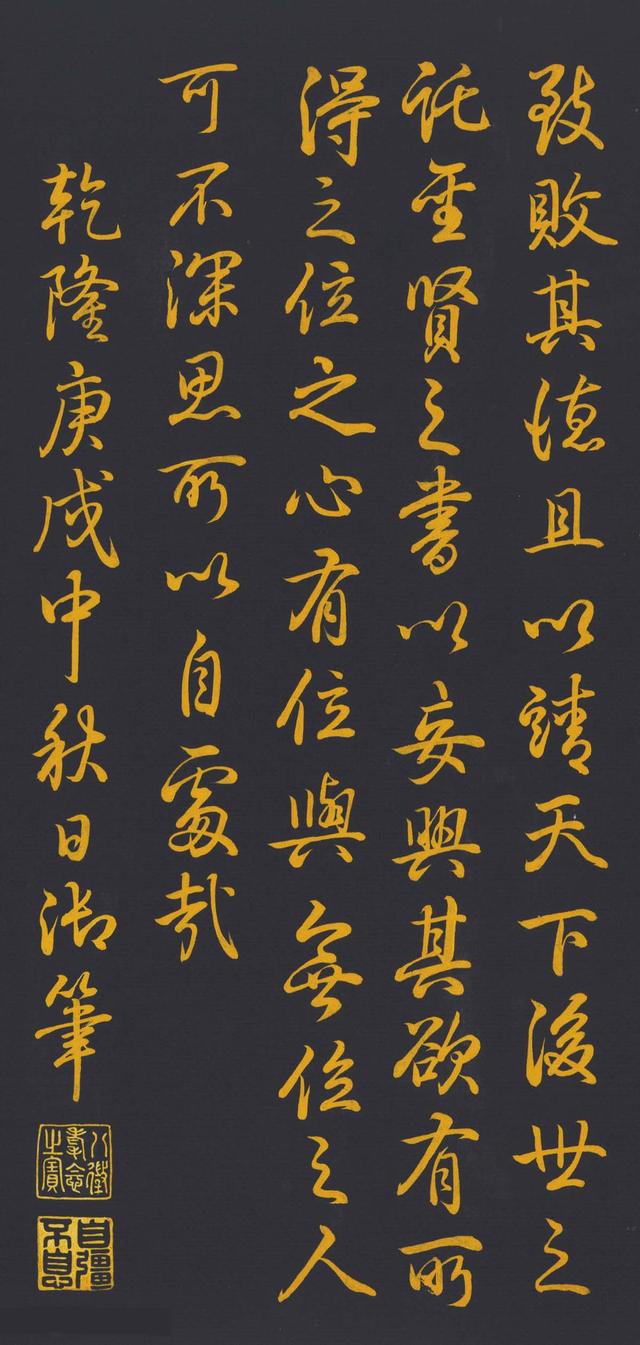 致敗其德且以靖天下後世之
託聖賢之書以妄興其欲有所
得之位之心有位與無位之人
可不深思所以自處哉
乾隆庚戌中秋日御筆
八徵耄念之寶
自彊不息